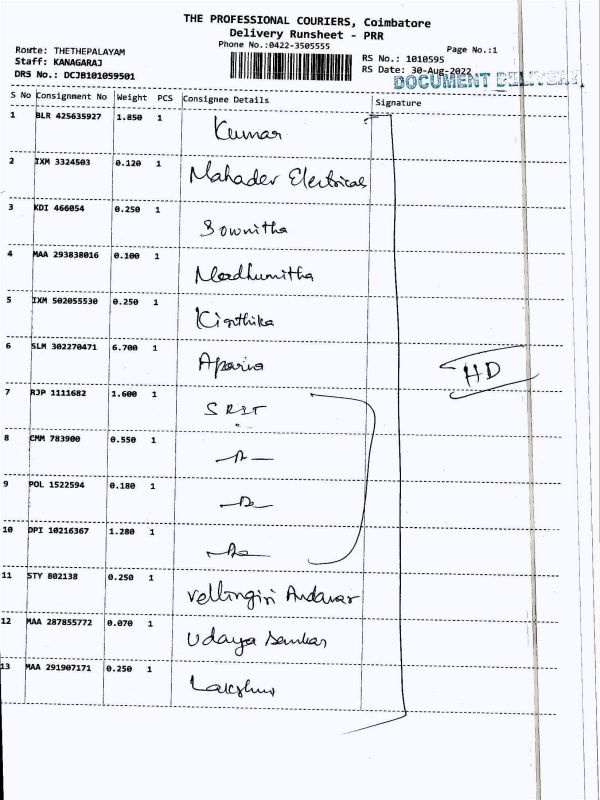 THE PROFESSIONAL COURIERS, Coimbatore
Delivery Runsheet - PRR
Phone No.:0422-3505555
Page No.:1
Route: THETHEPALAYAM
Staff: KANAGARAJ
DRS No.: DCJB101059501
RS No.: 1010595
RS Date: 30-Aug-2022
DOCUMENT DELIVERY
S No Consignment No Weight PCS Consignee Details Signature
1 BLR 425635927 1.850 1 Kumar
2 IXM 3324503 0.120 1 Mahadev Electricals
3 KDI 466054 0.250 1 Sownitha
4 MAA 293838016 0.100 1 Madhumitha
5 IXM 502055530 0.250 1 Kirthika
6 SLM 302270471 6.700 1 Aparna
HD
7 RJP 1111682 1.600 1 SRIT
8 CMM 783900 0.550 1
9 POL 1522594 0.180 1
10 DPI 10216367 1.280 1
11 STY 802138 0.250 1 Vellingiri Andavar
12 MAA 287855772 0.070 1 Udaya Sankar
13 MAA 291907171 0.250 1 Lakshmi